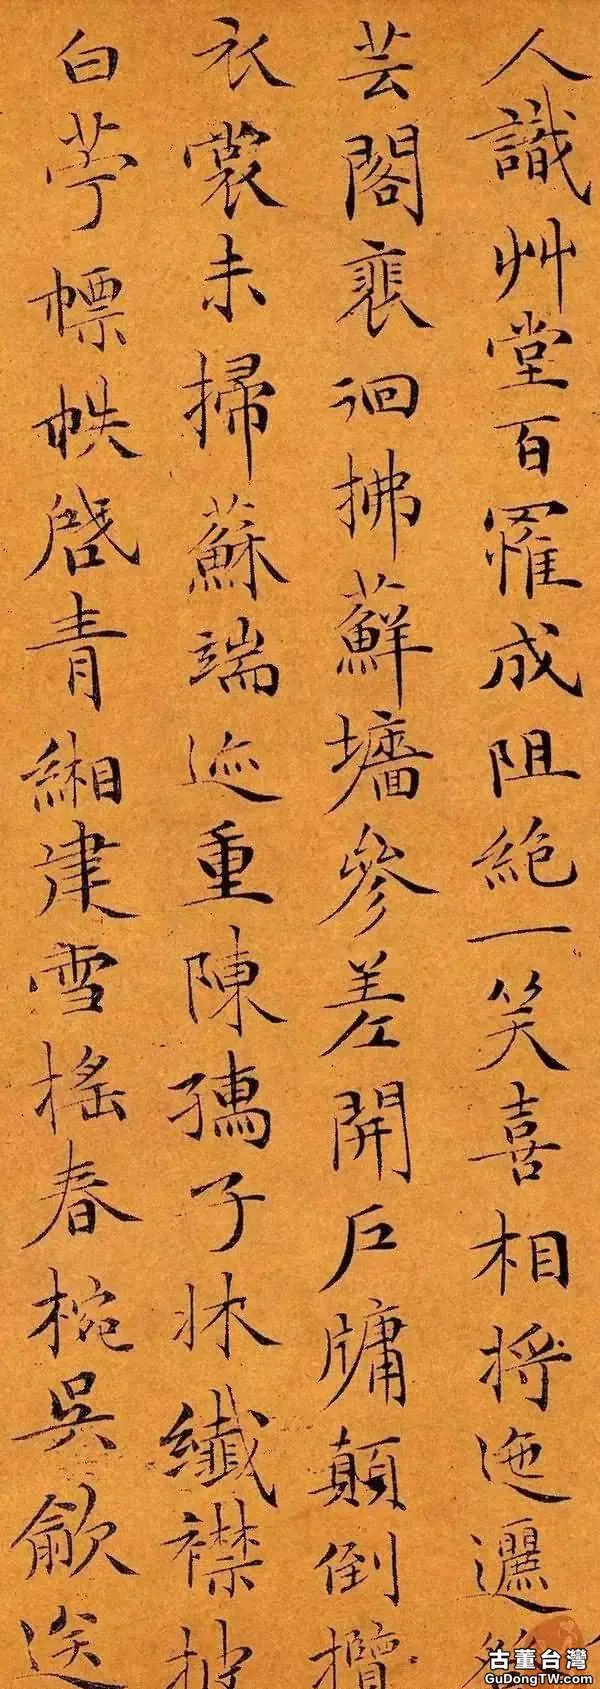 人識艸堂百罹成阻絕一笑喜相將迤邐
芸閣裵徊拂蘚墻參差開戶牖顛倒攬
衣裳未掃蘇端迹重陳孺子牀纖襟披
白苧幖帙啓青緗津雪搖春椀吳歈送
古董台灣
GuDongTW.com